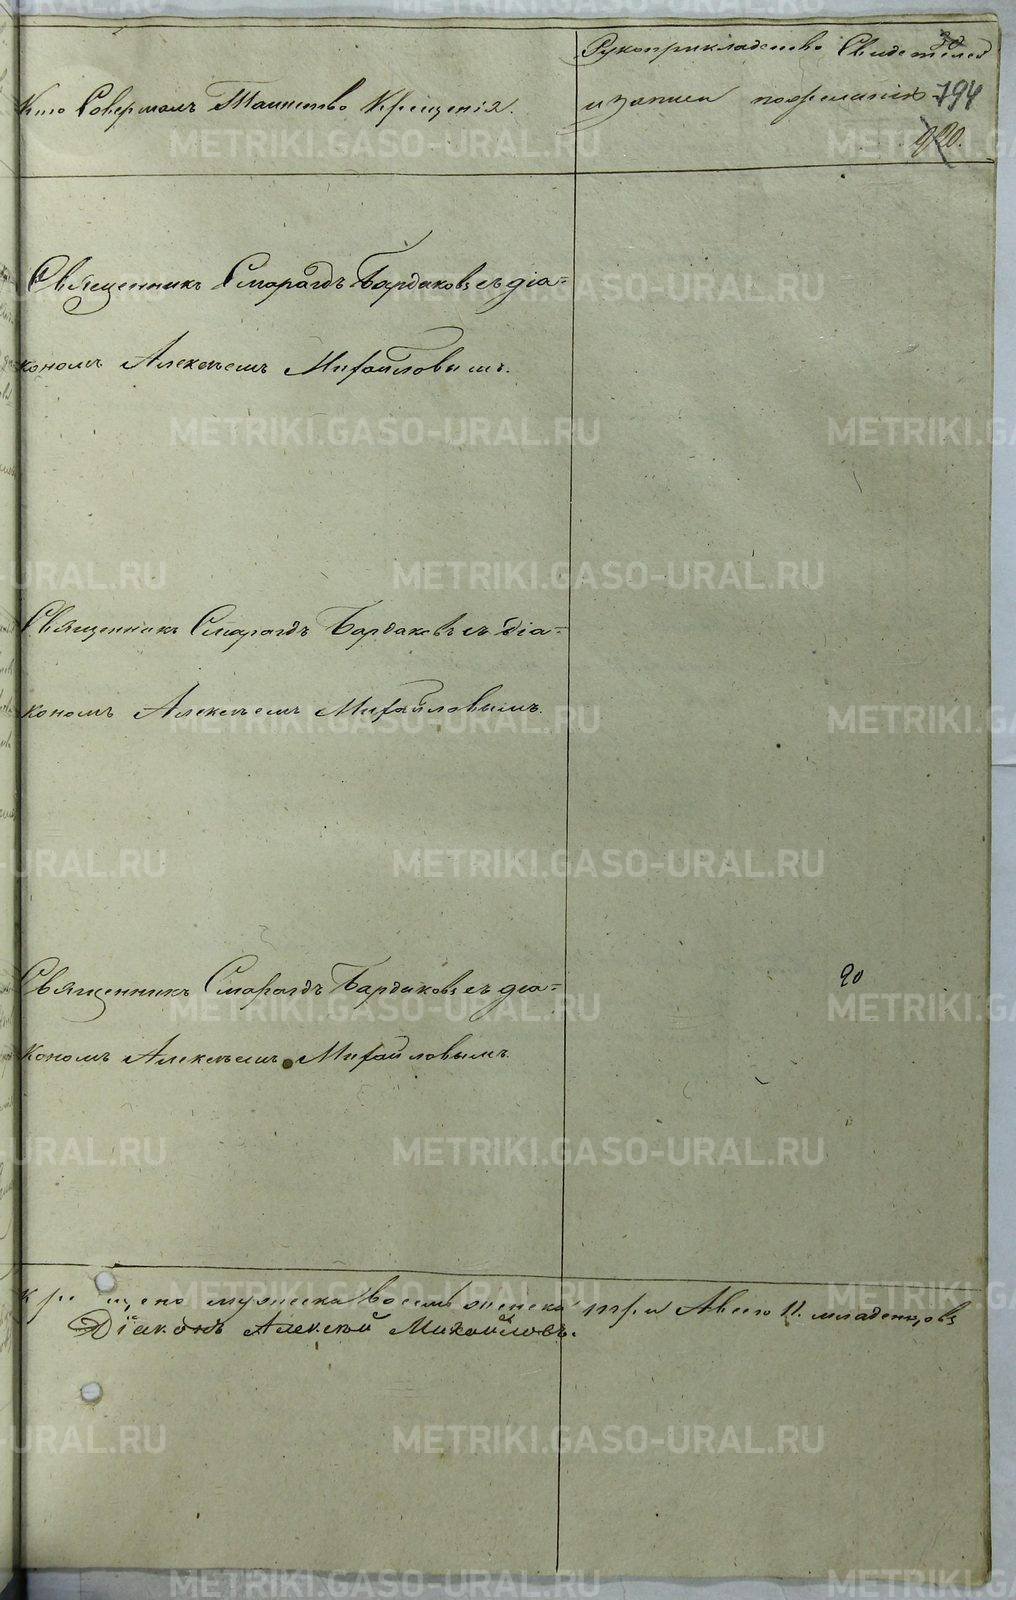 Кто Совершалъ Таинство Крещенія.
Рукоприкладство Свидетелей
и записи пожеланію
194
920.
Священникъ Смарагдъ Бардаковъ съ діа=
кономъ Алексѣемъ Михайловымъ.
Священникъ Смарагдъ Бардаковъ съ діа=
кономъ Алексѣемъ Михайловымъ.
Священникъ Смарагдъ Бардаковъ съ діа=
кономъ Алексѣемъ Михайловымъ.
20
мужеска восемь женска три А всего 11. младенцовъ
Діаконъ Алексѣй Михайловъ.
METRIKI.GASO-URAL.RU